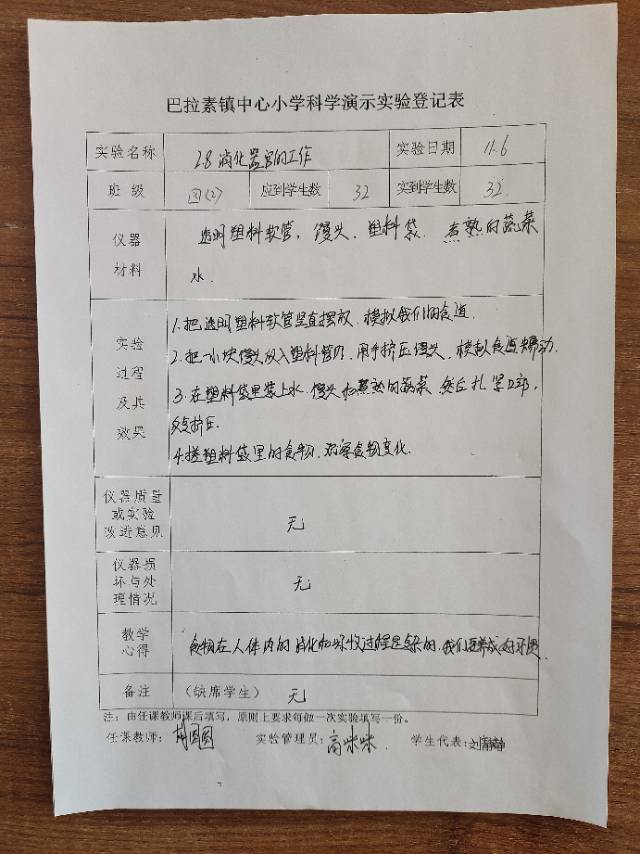 巴拉素镇中心小学科学演示实验登记表
实验名称 2.8 消化器官的工作 实验日期 11.6
班 级 四(2) 应到学生数 32 实到学生数 32
仪器 透明塑料软管, 馒头、塑料袋. 煮熟的蔬菜
材料 水.
1.把透明塑料软管竖直摆放. 模拟我们的食道.
实验 2.把小块馒头放入塑料管内, 用手挤压馒头, 模拟食道
过程 3.在塑料袋里装上水. 馒头和煮熟的蔬菜 然后扎紧口部,
及其 挤压.
效果 4.搓塑料袋里的食物. 观察食物变化.
仪器质量
或实验
改进意见 无
仪器损
坏与处
理情况 无
教学
心得 食物在人体内的消化和吸收过程是复杂的. 我们要养成
备注 (缺席学生) 无
注：由任课教师课后填写，原则上要求每做一次实验填写一份。
任课教师： 圆圆 实验管理员： 高咪咪 学生代表： 刘静静